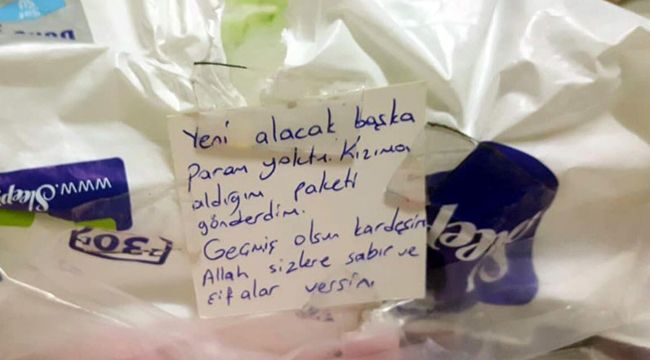 Yeni alacak başka
Param yoktu. Kızıma
aldığım paketi
gönderdim.
Geçmiş olsun kardeşim
Allah sizlere sabır ve
şifalar versin.
www.Sleep
-30
Sleep